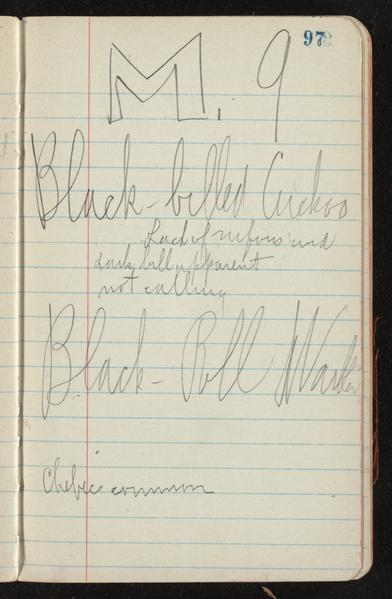 97
M. 9
Black-billed Cuckoo
Lack of rufous and
dark bill apparent
not calling
Black-Poll Warbler
Chebec common